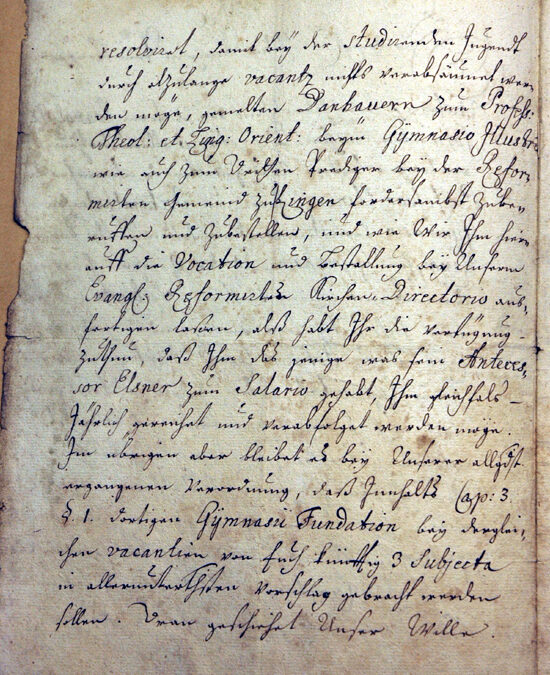 resolviret, damit bey der studirenden Jugendt
durch alzulange vacantz nichts verabsäumet wer-
den möge, gemelten Danbauern zum Profess:
Theol: et Ling: Orient: beym Gÿmnasio Illustri
wie auch zum Prediger bey der Refor-
mirten Gemeind zu Lingen fordersambst zube-
ruffen und zubestellen, und wie Wir Ihm hier-
auff die Vocation und Bestallung bey Unserm
Evangl: Reformirten Kirchen-Directorio aus-
fertigen lassen, alß habt Ihr die verfügung
zuthun, daß Ihm das jenige was sein Anteces-
sor Elsner zum Salario gehabt, Ihm gleichfals
Jährlich gereichet und verabfolget werden möge
Im übrigen aber bleibet es bey Unserer allgdst
ergangenen Verordnung, daß Innhalts Cap: 3.
§. 1. dortigen Gÿmnasii Fundation bey derglei-
chen vacantien von Euch künfftig 3 Subjecta
in allerunterthsten Vorschlag gebracht werden
sollen. Dran geschiehet Unser Wille.